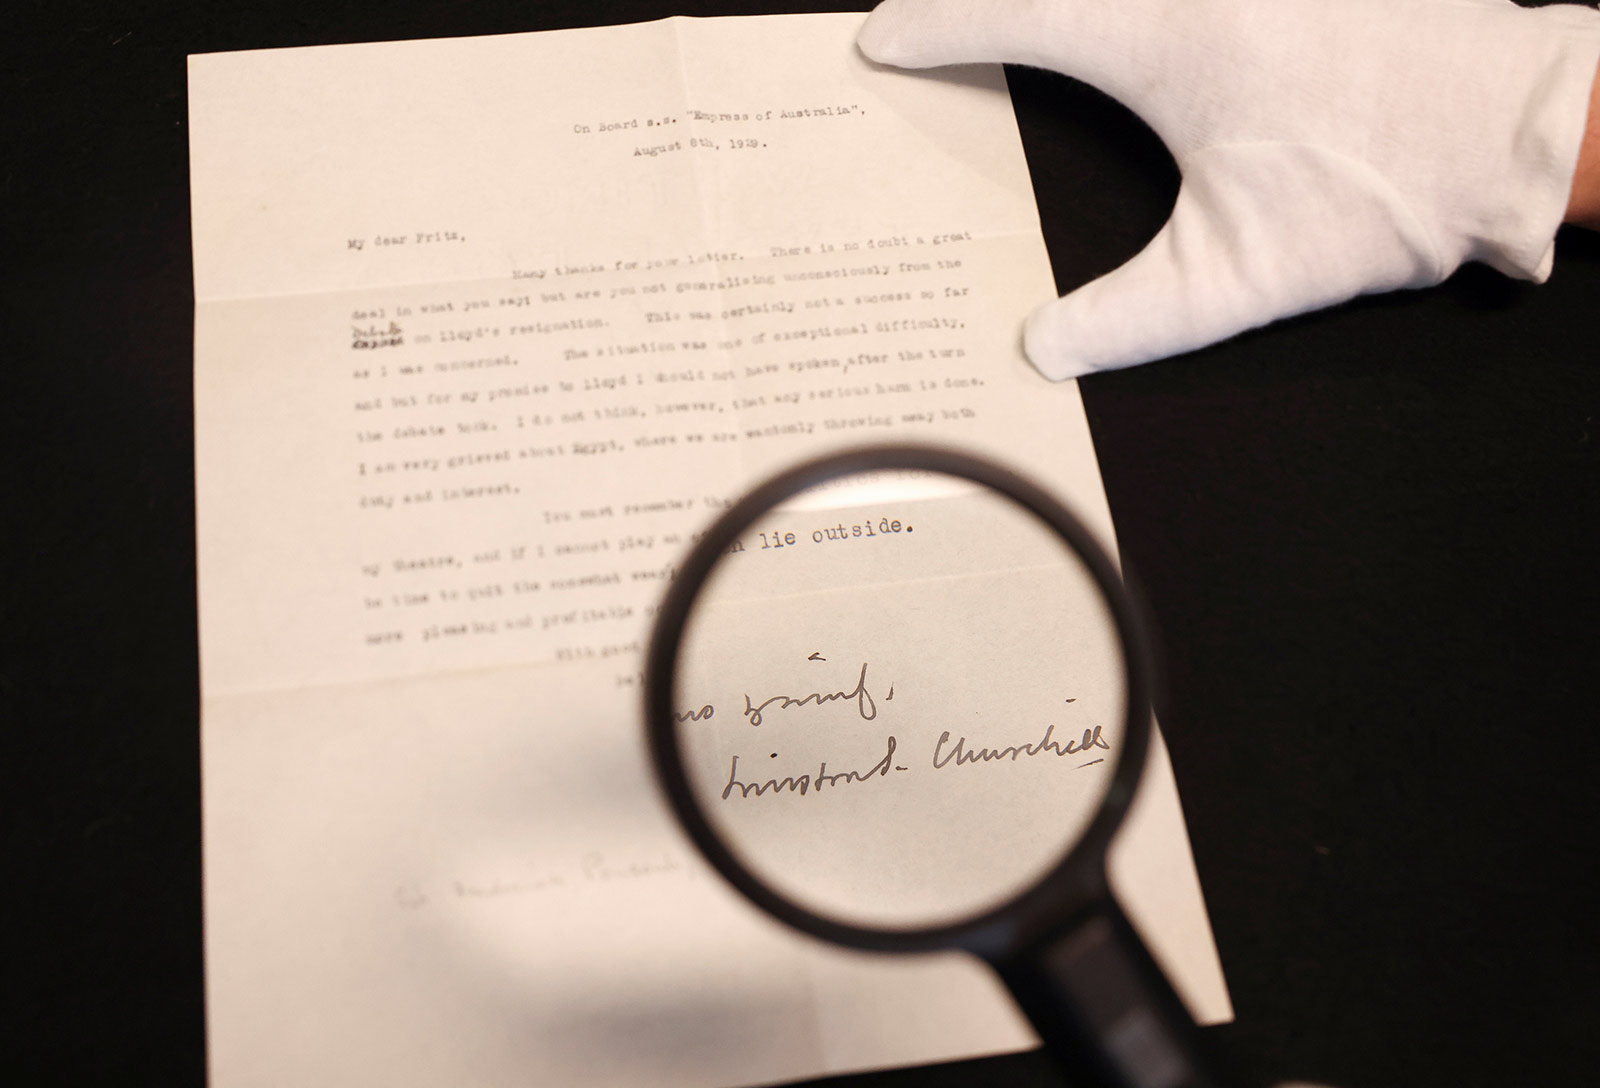 On Board s.s. "Empress of Australia",
August 8th, 1929.
My dear Fritz,
Many thanks for your letter. There is no doubt a great
deal in what you say; but are you not generalising unconsciously from the
debate on Lloyd's resignation. This was certainly not a success so far
as I was concerned. The situation was one of exceptional difficulty,
and but for my promise to Lloyd I should not have spoken, after the turn
the debate took. I do not think, however, that any serious harm is done.
I am very grieved about Egypt, where we are wantonly throwing away both
duty and interest.
You must remember
my theatre, and if I cannot play an
lie outside.
be time to quit the somewhat
more pleasing and profitable
With good
Winston S. Churchill